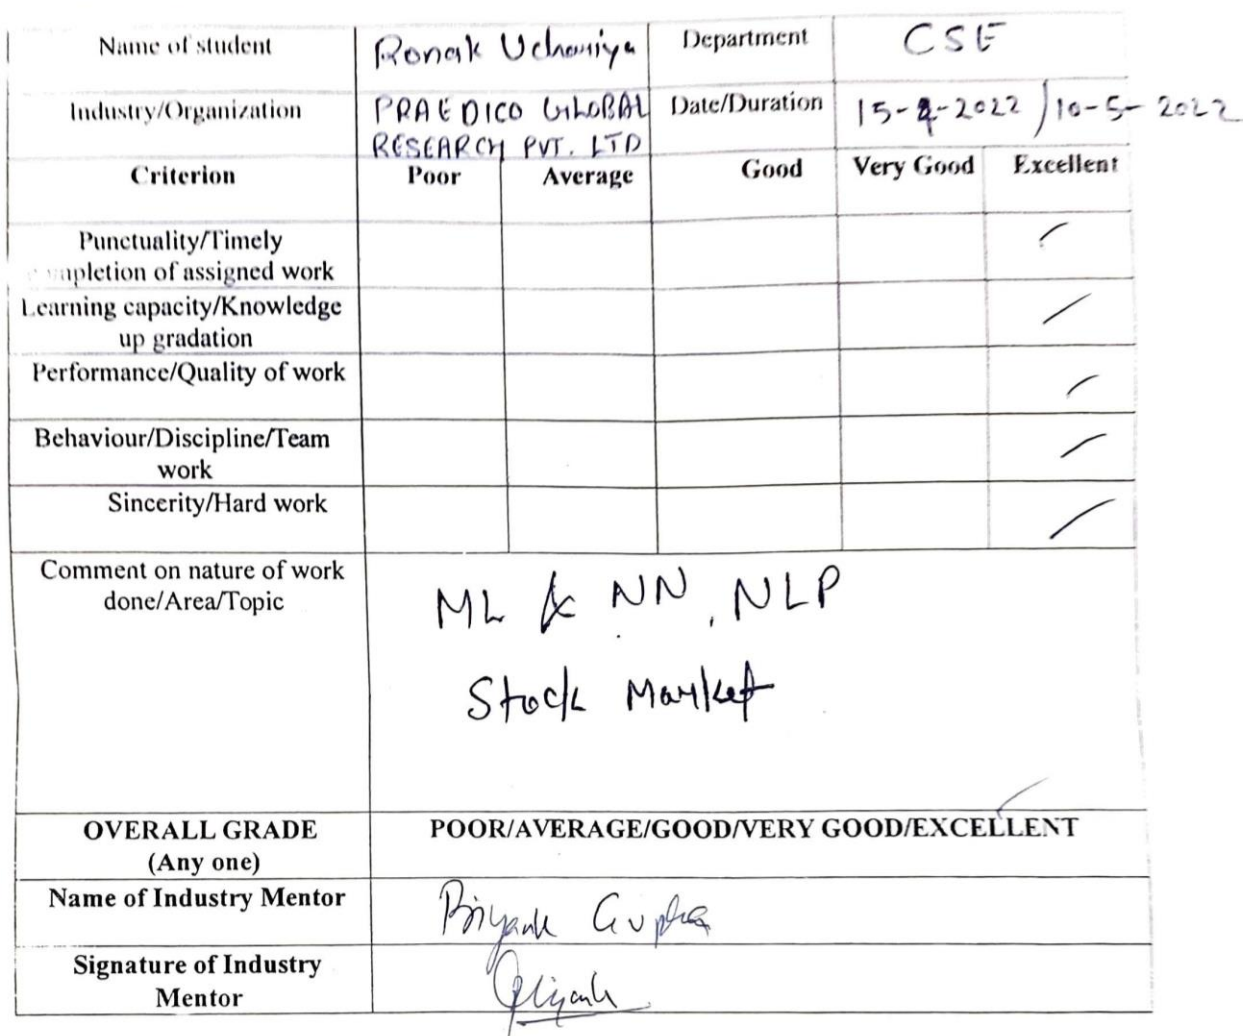 Name of student Ronak Uchaniya Department CSE
Industry/Organization PRAEDICO GLOBAL Date/Duration 15-2022 / 10-5-2022
RESEARCH PVT. LTD
Criterion Poor Average Good Very Good Excellent
Punctuality/Timely
completion of assigned work
Learning capacity/Knowledge
up gradation
Performance/Quality of work
Behaviour/Discipline/Team
work
Sincerity/Hard work
Comment on nature of work
done/Area/Topic
ML & NN, NLP
Stock Market
OVERALL GRADE POOR/AVERAGE/GOOD/VERY GOOD/EXCELLENT
(Any one)
Name of Industry Mentor Priyank Gupta
Signature of Industry
Mentor Priyank